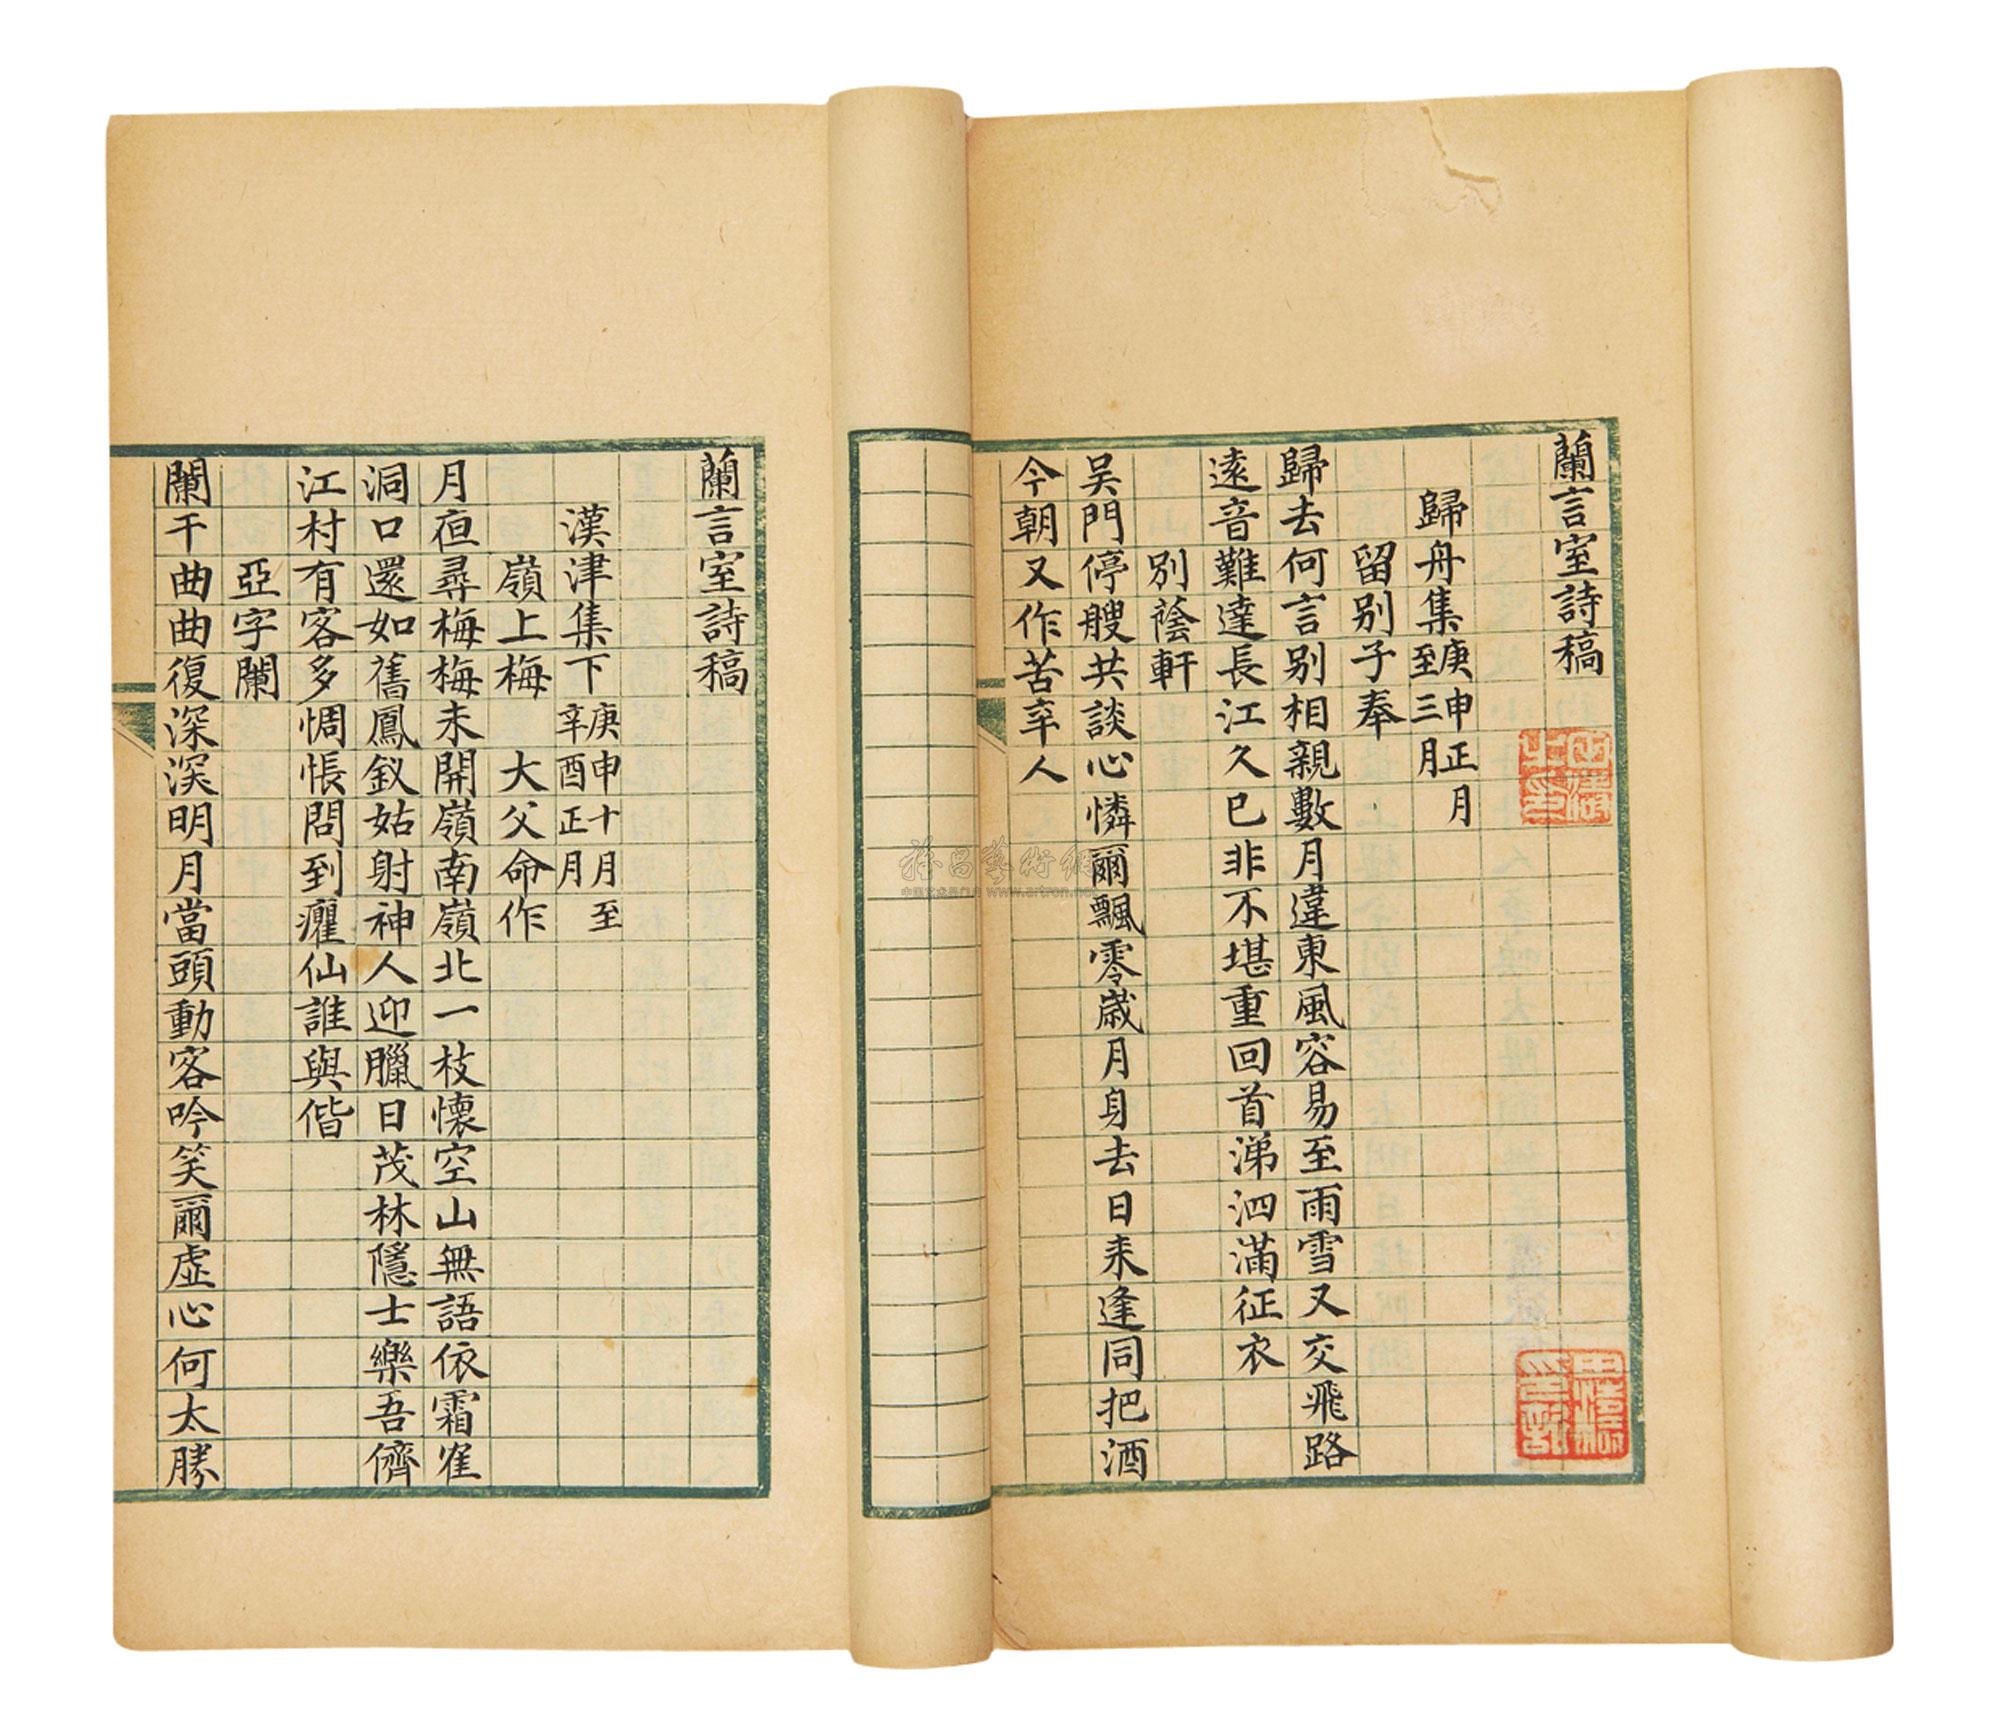 蘭言室詩稿
歸舟集庚申正月至三月
留別子奉
歸去何言別相親數月違東風容易至雨雪又交飛路
遠音難達長江久已非不堪重回首涕泗滿征衣
別蔭軒
吴門停艘共談心憐爾飄零歲月身去日来逢同把酒
今朝又作苦辛人
蘭言室詩稿
漢津集下庚申十月至辛酉正月
嶺上梅 大父命作
月夜尋梅梅未開嶺南嶺北一枝懷空山無語依霜崔
洞口還如舊鳳釵姑射神人迎臘日茂林隱士樂吾儕
江村有客多惆悵問到癯仙誰與偕
亞字闌
闌干曲曲復深深明月當頭動客吟笑爾虛心何太勝
www.artron.net